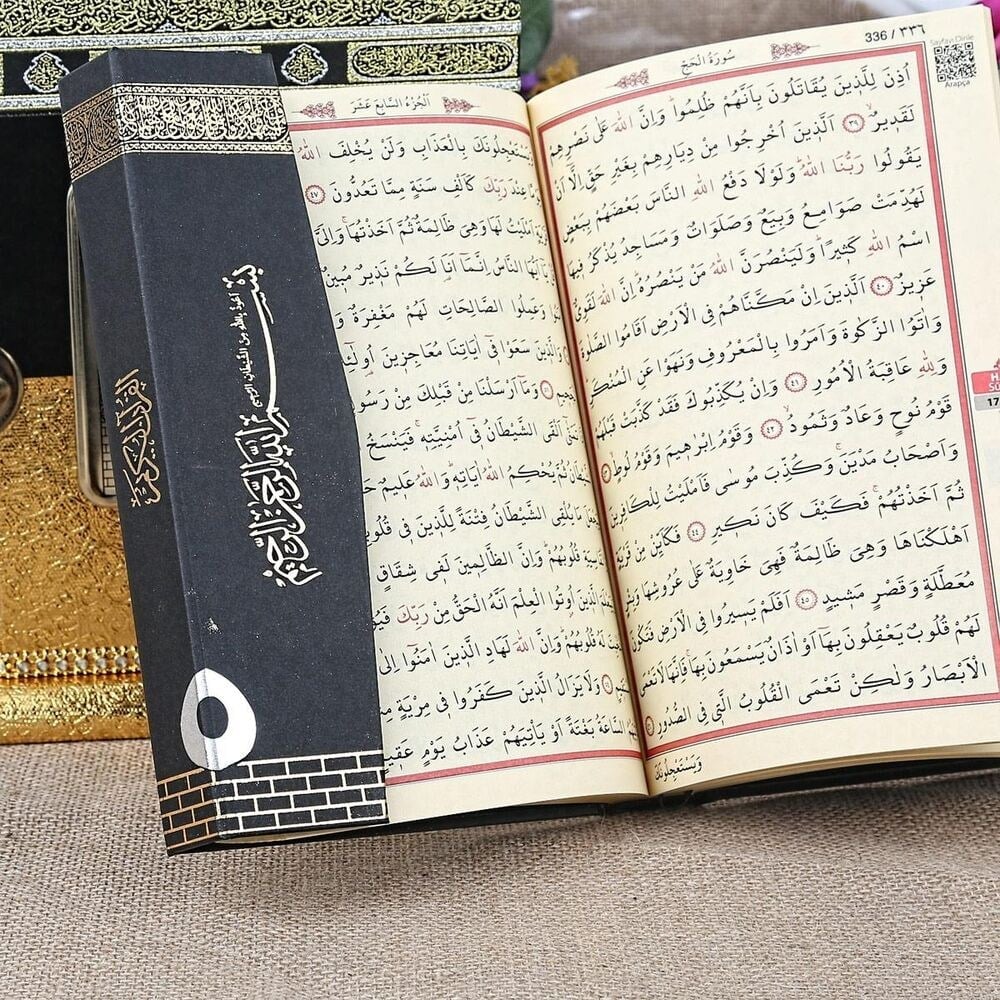 336 / ٣٣٦
سُورَةُ الْحَجِّ
Sayfayı Dinle
Arapça
اُذِنَ لِلَّذ۪ينَ يُقَاتَلُونَ بِاَنَّهُمْ ظُلِمُواۜ وَاِنَّ اللّٰهَ عَلٰى نَصْرِهِمْ
لَقَد۪يرٌۙ ٣٩ اَلَّذ۪ينَ اُخْرِجُوا مِنْ دِيَارِهِمْ بِغَيْرِ حَقٍّ اِلَّٓا اَنْ
يَقُولُوا رَبُّنَا اللّٰهُۜ وَلَوْلَا دَفْعُ اللّٰهِ النَّاسَ بَعْضَهُمْ بِبَعْضٍ
لَهُدِّمَتْ صَوَامِعُ وَبِيَعٌ وَصَلَوَاتٌ وَمَسَاجِدُ يُذْكَرُ ف۪يهَا
اسْمُ اللّٰهِ كَث۪يرًاۜ وَلَيَنْصُرَنَّ اللّٰهُ مَنْ يَنْصُرُهُۜ اِنَّ اللّٰهَ لَقَوِيٌّ
عَز۪يزٌ ٤٠ اَلَّذ۪ينَ اِنْ مَكَّنَّاهُمْ فِي الْاَرْضِ اَقَامُوا الصَّلٰوةَ
وَاٰتَوُا الزَّكٰوةَ وَاَمَرُوا بِالْمَعْرُوفِ وَنَهَوْا عَنِ الْمُنْكَرِۜ
وَلِلّٰهِ عَاقِبَةُ الْاُمُورِ ٤١ وَاِنْ يُكَذِّبُوكَ فَقَدْ كَذَّبَتْ قَبْلَهُمْ
قَوْمُ نُوحٍ وَعَادٌ وَثَمُودُۙ ٤٢ وَقَوْمُ اِبْرٰه۪يمَ وَقَوْمُ لُوطٍۙ ٤٣
وَاَصْحَابُ مَدْيَنَۚ وَكُذِّبَ مُوسٰى فَاَمْلَيْتُ لِلْكَافِر۪ينَ
ثُمَّ اَخَذْتُهُمْۚ فَكَيْفَ كَانَ نَك۪يرِ ٤٤ فَكَاَيِّنْ مِنْ قَرْيَةٍ
اَهْلَكْنَاهَا وَهِيَ ظَالِمَةٌ فَهِيَ خَاوِيَةٌ عَلٰى عُرُوشِهَاۘ وَبِئْرٍ
مُعَطَّلَةٍ وَقَصْرٍ مَش۪يدٍ ٤٥ اَفَلَمْ يَس۪يرُوا فِي الْاَرْضِ فَتَكُونَ
لَهُمْ قُلُوبٌ يَعْقِلُونَ بِهَٓا اَوْ اٰذَانٌ يَسْمَعُونَ بِهَاۚ فَاِنَّهَا لَا تَعْمَى
الْاَبْصَارُ وَلٰكِنْ تَعْمَى الْقُلُوبُ الَّت۪ي فِي الصُّدُورِ ٤٦
وَيَسْتَعْجِلُونَكَ
17
اَلْجُزْءُ السَّابِعَ عَشَرَ
وَيَسْتَعْجِلُونَكَ بِالْعَذَابِ وَلَنْ يُخْلِفَ اللّٰهُ
عِنْدَ رَبِّكَ كَاَلْفِ سَنَةٍ مِمَّا تَعُدُّونَ ٤٧
اَمْلَيْتُ لَهَا وَهِيَ ظَالِمَةٌ ثُمَّ اَخَذْتُهَاۚ وَاِلَيَّ
النَّاسُ اِنَّمَٓا اَنَا۬ لَكُمْ نَذ۪يرٌ مُب۪ينٌ
وَعَمِلُوا الصَّالِحَاتِ لَهُمْ مَغْفِرَةٌ
وَالَّذ۪ينَ سَعَوْا ف۪ٓي اٰيَاتِنَا مُعَاجِز۪ينَ
وَمَٓا اَرْسَلْنَا مِنْ قَبْلِكَ مِنْ رَسُولٍ
اَلْقَى الشَّيْطَانُ ف۪ٓي اُمْنِيَّتِه۪ۚ فَيَنْسَخُ
ثُمَّ يُحْكِمُ اللّٰهُ اٰيَاتِه۪ۜ وَاللّٰهُ عَل۪يمٌ
مَا يُلْقِي الشَّيْطَانُ فِتْنَةً لِلَّذ۪ينَ ف۪ي
قُلُوبُهُمْۜ وَاِنَّ الظَّالِم۪ينَ لَف۪ي شِقَاقٍ
الَّذ۪ينَ اُو۫تُوا الْعِلْمَ اَنَّهُ الْحَقُّ مِنْ رَبِّكَ
لَهُ قُلُوبُهُمْۜ وَاِنَّ اللّٰهَ لَهَادِ الَّذ۪ينَ اٰمَنُٓوا اِلٰى
وَلَا يَزَالُ الَّذ۪ينَ كَفَرُوا ف۪ي مِرْيَةٍ
السَّاعَةُ بَغْتَةً اَوْ يَأْتِيَهُمْ عَذَابُ يَوْمٍ عَق۪يمٍ
اعوذ بالله من الشيطان الرجيم
بسم الله الرحمن الرحيم
القرآن الكريم